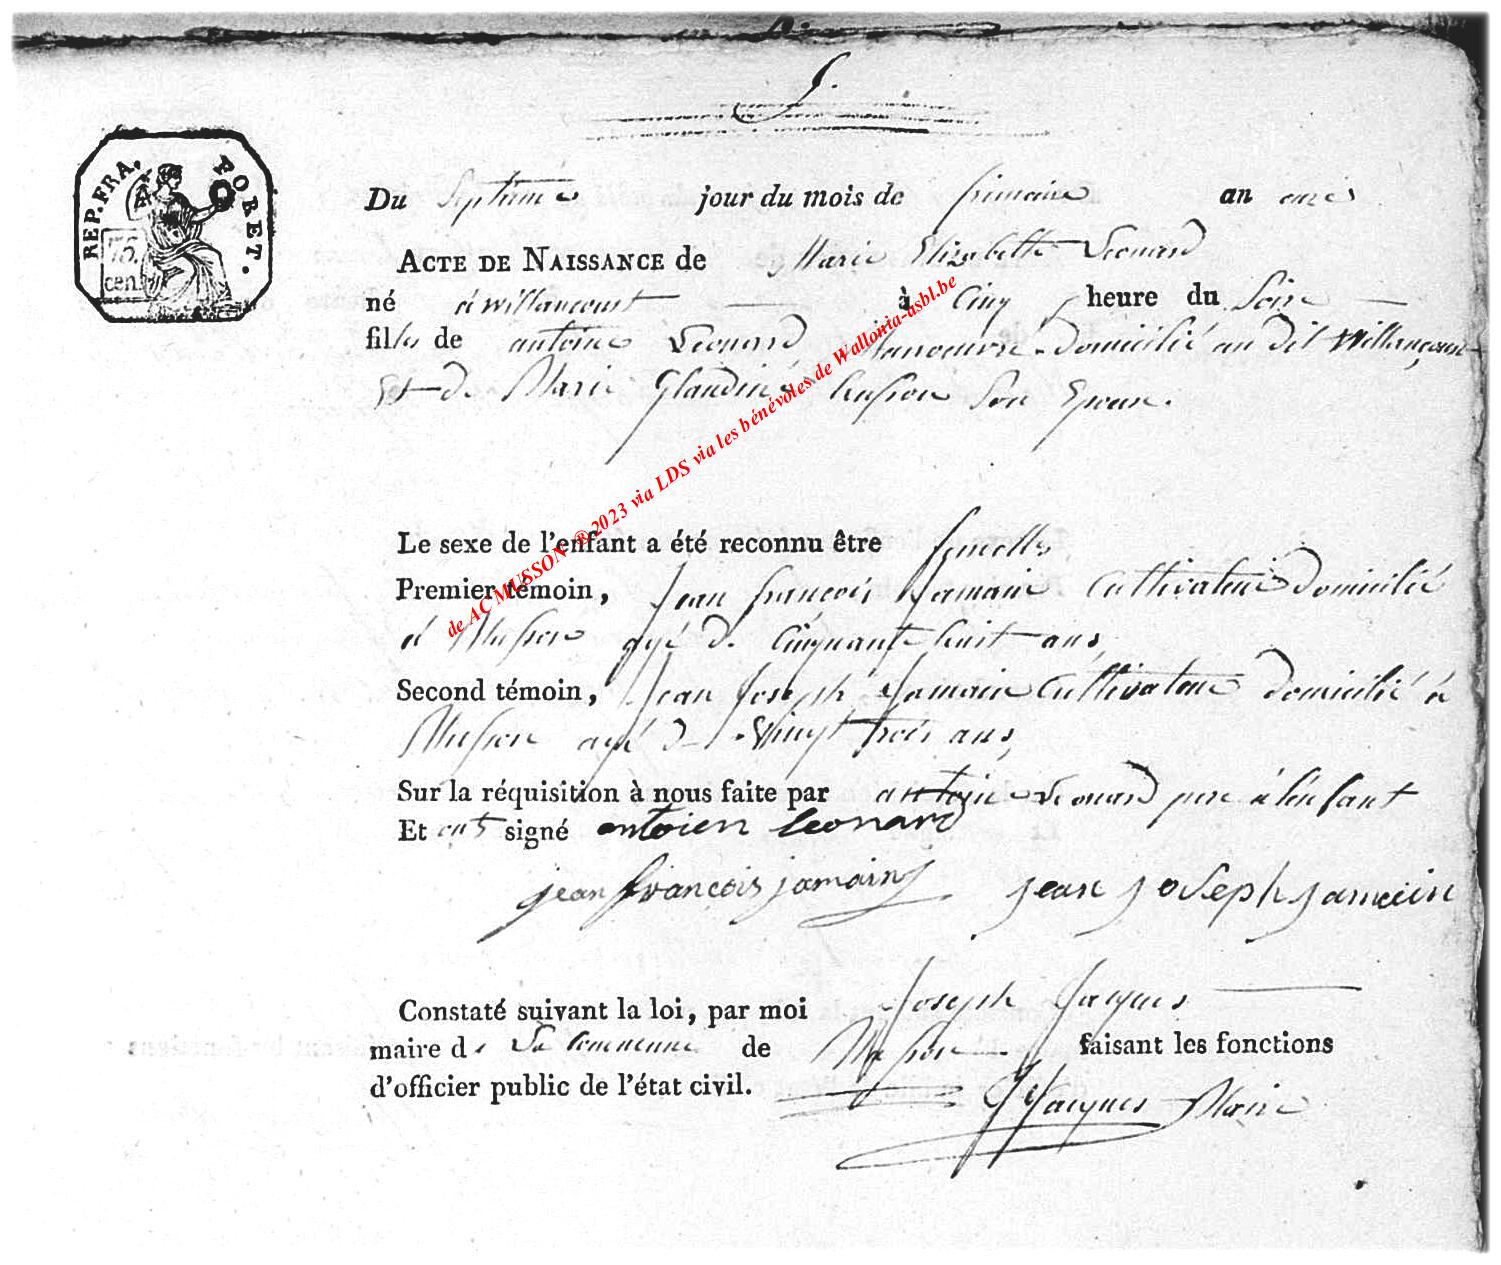 5.
REP. FRA. FORET.
75.
cen.
Du Septieme jour du mois de frimaire an onze
ACTE DE NAISSANCE de Marie Elizabette Leonard
né à willancourt à Cinq heure du Soire
filles de antoine Leonard, Manoeuvre domicilié au dit Willancourt
Et de Marie Glaudine husson Son Epouse.
Le sexe de l'enfant a été reconnu être femelle
Premier témoin, Jean francois Jamain Cultivateur domicilié
à Musson agé de Cinquante huit ans,
Second témoin, Jean Joseph Jamain Cultivateur domicilié à
Musson agé de Vingt trois ans,
Sur la réquisition à nous faite par antoine Leonard pere à l'enfant
Et ont signé antoien leonard
jean francois jamain jean joseph jamain
Constaté suivant la loi, par moi Joseph Jacques
maire de La commune de Musson faisant les fonctions
d'officier public de l'état civil.
JJacques Maire
de AC MUSSON ® 2023 via LDS via les bénévoles de Wallonia-asbl.be